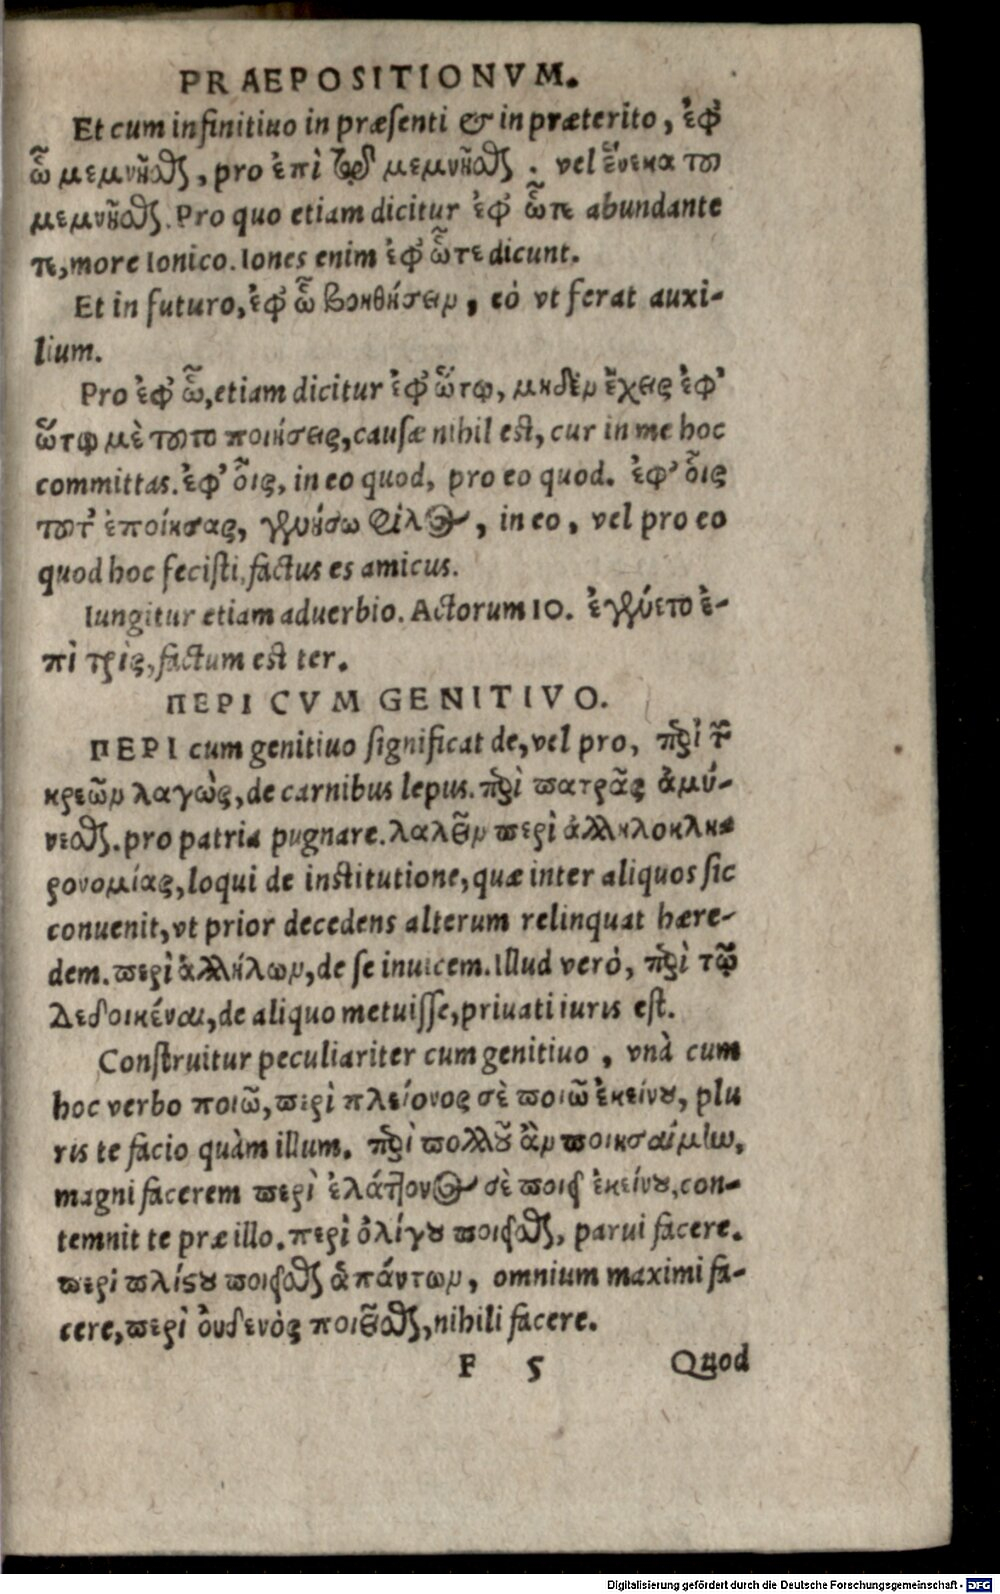 PRAEPOSITIONVM.
Et cum infinitiuo in præsenti & in præterito, ἐφ'
ᾧ μεμνῆσθαι, pro ἐπὶ τῷ μεμνῆσθαι. vel ἕνεκα τοῦ
μεμνῆσθαι. Pro quo etiam dicitur ἐφ' ᾧτε abundante
τε, more Ionico. Iones enim ἐφ' ᾧτε dicunt.
Et in futuro, ἐφ' ᾧ βοηθήσειν, eò vt ferat auxi-
lium.
Pro ἐφ' ᾧ, etiam dicitur ἐφ' ὥτῳ, μηδὲν ἔχεις ἐφ'
ὥτῳ μὲ τοῦτο ποιήσεις, causæ nihil est, cur in me hoc
committas. ἐφ' οἷς, in eo quod, pro eo quod. ἐφ' οἷς
τοῦτ' ἐποίησας, γενήσω φίλος, in eo, vel pro eo
quod hoc fecisti, factus es amicus.
Iungitur etiam aduerbio. Actorum 10. ἐγένετο ἐ-
πὶ τρὶς, factum est ter.
ΠΕΡΙ CVM GENITIVO.
ΠΕΡΙ cum genitiuo significat de, vel pro, περὶ τῶν
κρεῶν λαγὼς, de carnibus lepus. περὶ πατρᾶς ἀμύ-
νεσθαι. pro patria pugnare. λαλεῖν περὶ ἀλληλοκλη-
ρονομίας, loqui de institutione, quæ inter aliquos sic
conuenit, vt prior decedens alterum relinquat hære-
dem. περὶ ἀλλήλων, de se inuicem. Illud verò, περὶ τῷ
Δεδοικέναι, de aliquo metuisse, priuati iuris est.
Construitur peculiariter cum genitiuo, vnà cum
hoc verbo ποιῶ, περὶ πλείονος σὲ ποιῶ ἐκείνου, plu
ris te facio quàm illum. περὶ πολλοῦ ἂν ποιησαίμην,
magni facerem περὶ ἐλάττονος σὲ ποιεῖ ἐκείνου, con-
temnit te præ illo. περὶ ὀλίγου ποιεῖσθαι, parui facere.
περὶ πλίστου ποιεῖσθαι ἁπάντων, omnium maximi fa-
cere, περὶ οὐδενὸς ποιεῖσθαι, nihili facere.
F 5 Quod
Digitalisierung gefördert durch die Deutsche Forschungsgemeinschaft - DFG